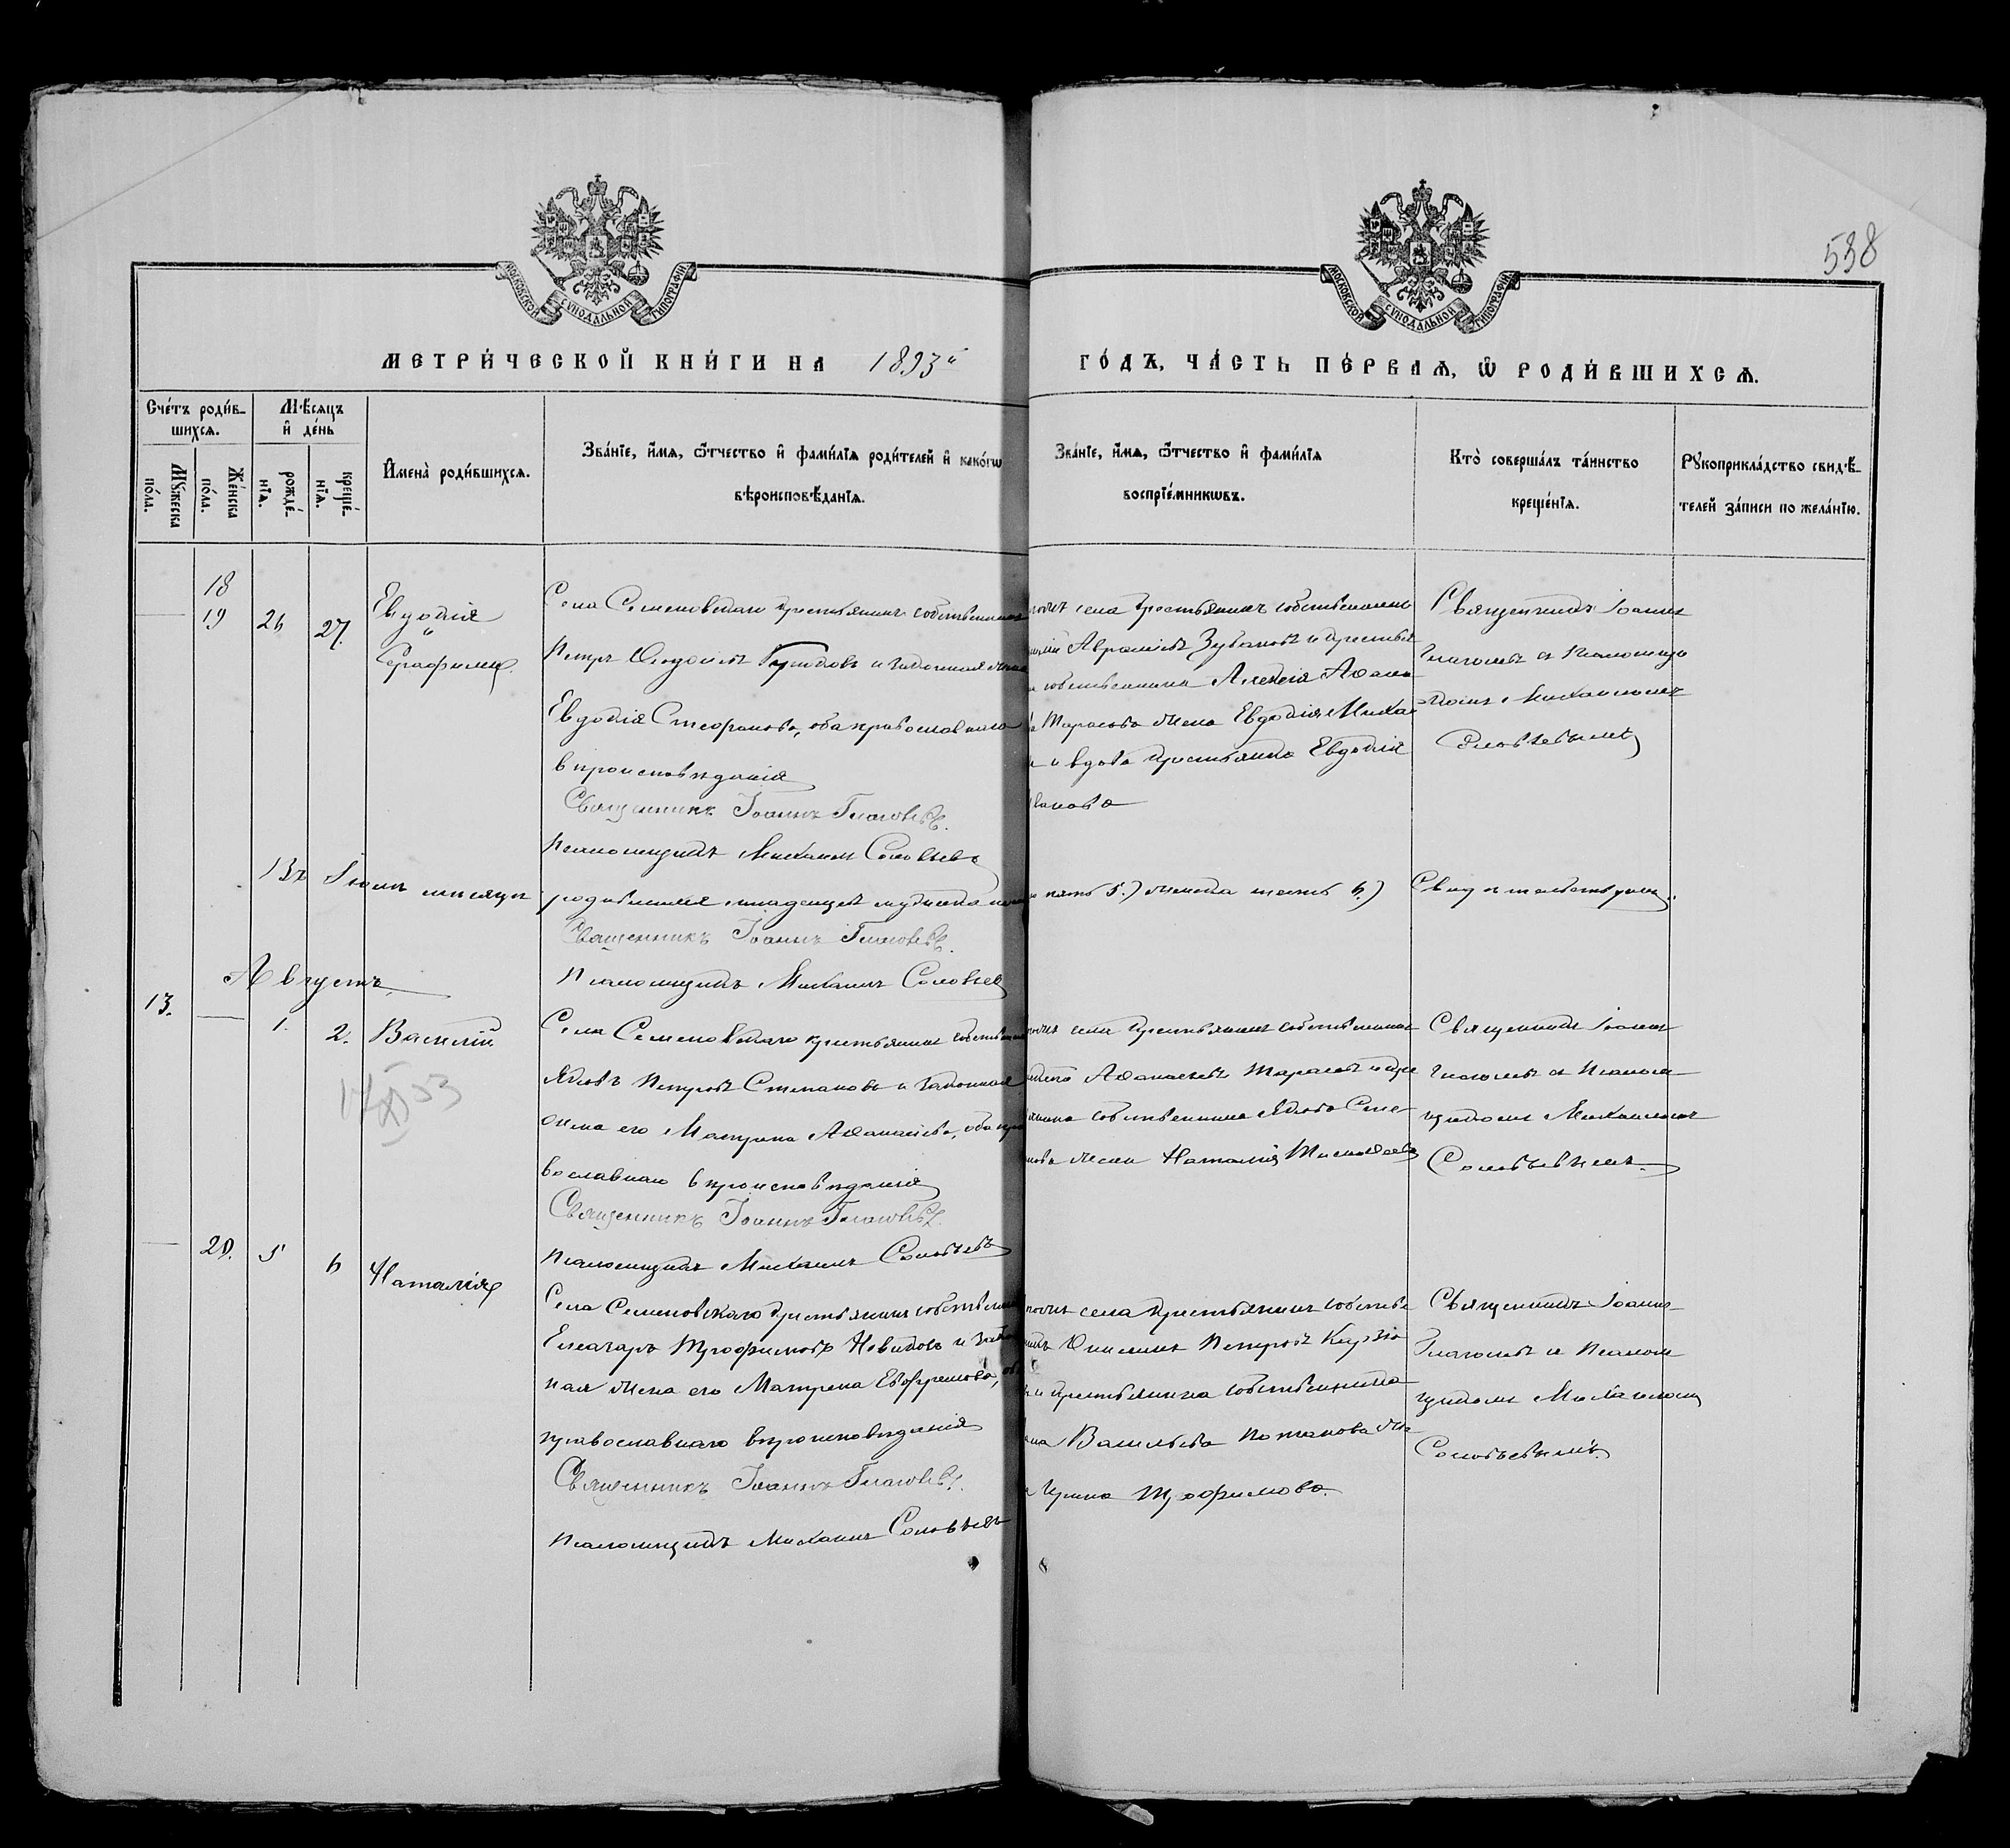 538
МОСКОВСКОЙ СѴНОДАЛЬНОЙ ТИПОГРАФІИ
МОСКОВСКОЙ СѴНОДАЛЬНОЙ ТИПОГРАФІИ
МЕТРИ́ЧЕСКОЙ КНИ́ГИ НА 1893й ГО́ДЪ, ЧА́СТЬ ПЕ́РВАѦ, Ѿ РОДИ́ВШИХСѦ.
Сче́тъ роди́в-
шихсѧ.
Мꙋ́жеска
по́ла.
Же́нска
по́ла.
Мѣ́сяцъ
и҆ де́нь
рожде́-
нїѧ.
креще́-
нїѧ.
И҆мена̀ роди́вшихсѧ.
Зва́нїе, и҆́мѧ, ѻ҆́тчество и҆ фами́лїѧ роди́телей и҆ како́гѡ
вѣроисповѣ́данїѧ.
Зва́нїе, и҆́мѧ, ѻ҆́тчество и҆ фами́лїѧ
воспрїе́мникѡвъ.
Кто̀ соверша́лъ та́инство
креще́нїѧ.
Рꙋкоприкла́дство свидѣ́-
телей за́писи по жела́нїю.
18
19 26 27. Евдокія
"
Серафима
Села Семеновскаго крестьянинъ собственникъ
Петръ Ѳедоровъ и законная жена
Евдокія Стефанова, оба православнаго
вѣроисповѣданія
Священникъ Іоаннъ Глаголевъ.
Псаломщикъ Михаилъ Соловьевъ
села крестьянинъ собственникъ
Авраміевъ Зубановъ и крестья
собственника Алексія Аѳана
Тарасова жена Евдокія Миха
и вдова крестьянка Евдокія
Священникъ Іоаннъ
Глаголевъ съ Псаломщи
комъ Михаиломъ
Соловьевымъ
Въ Іюлѣ мѣсяцѣ родившихся младенцевъ мужеска
пять 5.) женска шесть 6.) Свидѣтельствуемъ.
Священникъ Іоаннъ Глаголевъ.
Псаломщикъ Михаилъ Соловьевъ
Августъ
13. 1. 2. Василій
Села Семеновскаго крестьянинъ
Яковъ Петровъ Степановъ и законная
жена его Матрона Аѳанасіева, оба пра
вославнаго вѣроисповѣданія
Священникъ Іоаннъ Глаголевъ.
Псаломщикъ Михаилъ Соловьевъ
села крестьянинъ собственникъ
Аѳанасіевъ Тарасовъ и кре
собственника Якова Сте
жена Наталія Тимоѳеева
Священникъ Іоаннъ
Глаголевъ съ Псалом
щикомъ Михаиломъ
Соловьевымъ.
20. 5 6 Наталія
Села Семеновскаго крестьянинъ
Елеазаръ Трофимовъ Новиковъ и
ная жена его Матрена Евфремова,
православнаго вѣроисповѣданія
Священникъ Іоаннъ Глаголевъ.
Псаломщикъ Михаилъ Соловьевъ
села крестьянинъ
Петровъ
и крестьянина собственника
Васильева Потапова же
Ирина Трофимова.
Священникъ Іоаннъ
Глаголевъ и Псалом
щикомъ Михаиломъ
Соловьевымъ.